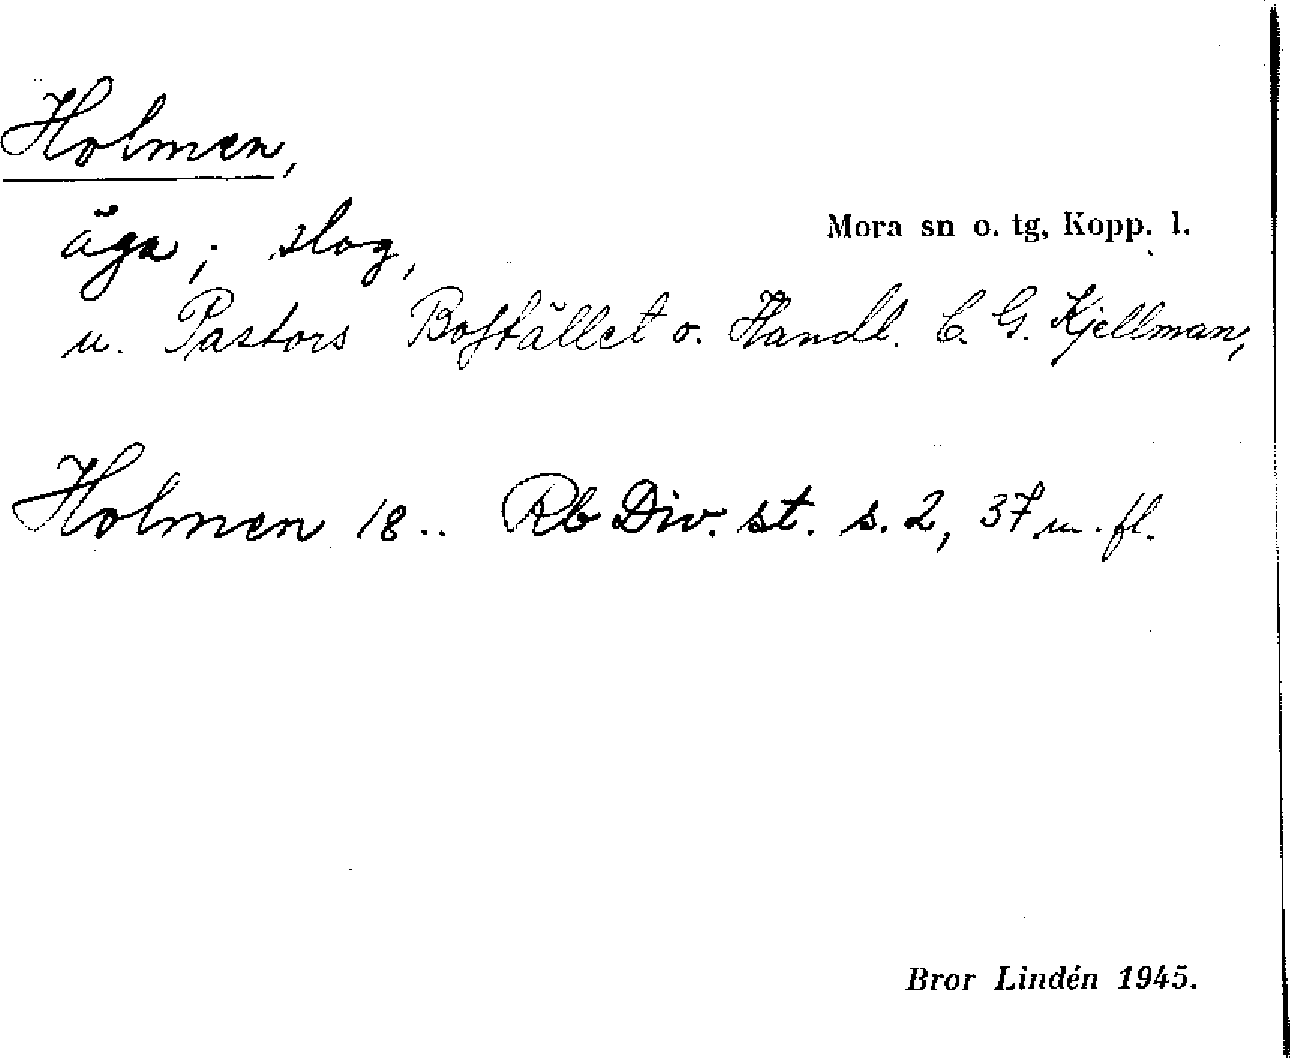 Holmen,
Mora sn o. tg, Kopp. l.
äga; slog,
u. Pastors Boställlet o. Handl. C. G. Kjellman,
Holmen 18.. Rb Div. st. s. 2, 37 m. fl.
Bror Lindén 1945.